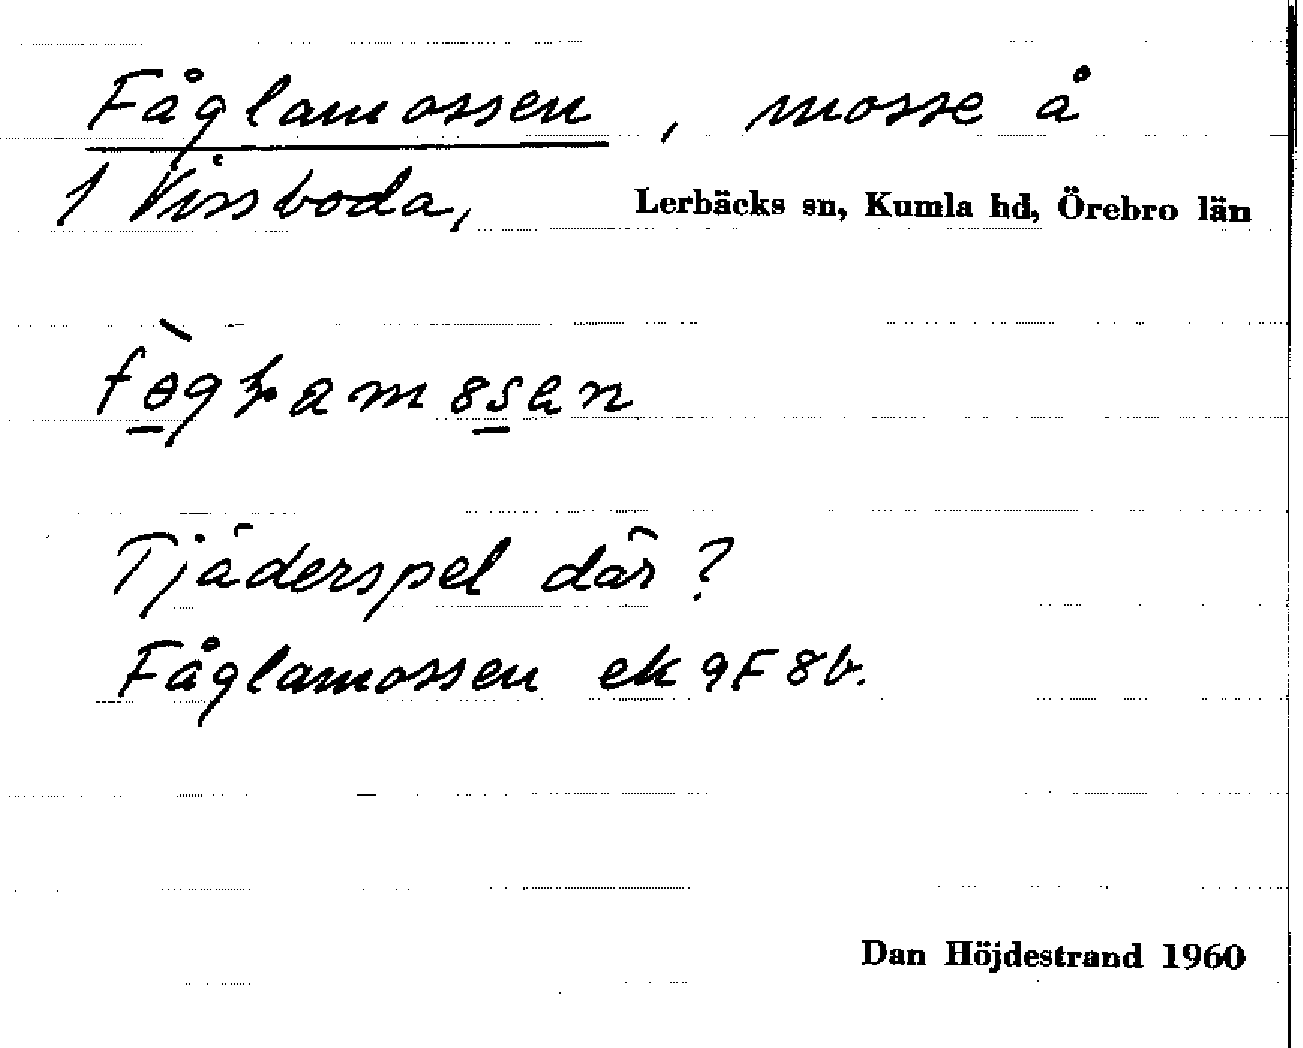 Fåglamossen, mosse å
1 Vissboda, Lerbäcks sn, Kumla hd, Örebro län
Tjäderspel där?
Fåglamossen ek 9F 8b.
Dan Höjdestrand 1960